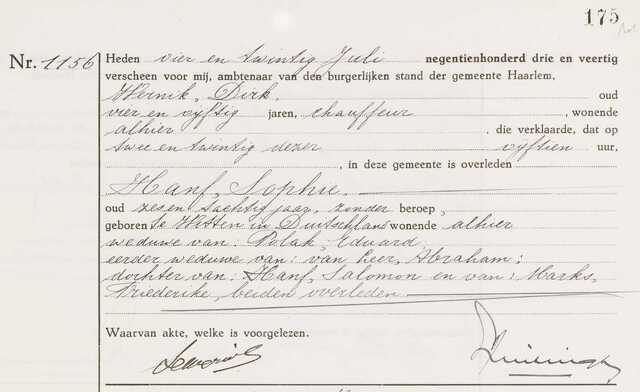 175
Nr. 1156
Heden vier en twintig Juli negentienhonderd drie en veertig
verscheen voor mij, ambtenaar van den burgerlijken stand der gemeente Haarlem,
Wernik, Dirk, oud
vier en vijftig jaren, chauffeur, wonende
alhier, die verklaarde, dat op
twee en twintig dezer vijftien uur,
, in deze gemeente is overleden
Hanf, Sophie.
oud zes en tachtig jaar, zonder beroep,
geboren te Witten in Duitschland wonende alhier
weduwe van: Polak, Eduard
eerder weduwe van: van Leer, Abraham;
dochter van: Hanf, Salomon en van: Marks,
Friederike, beiden overleden
Waarvan akte, welke is voorgelezen.